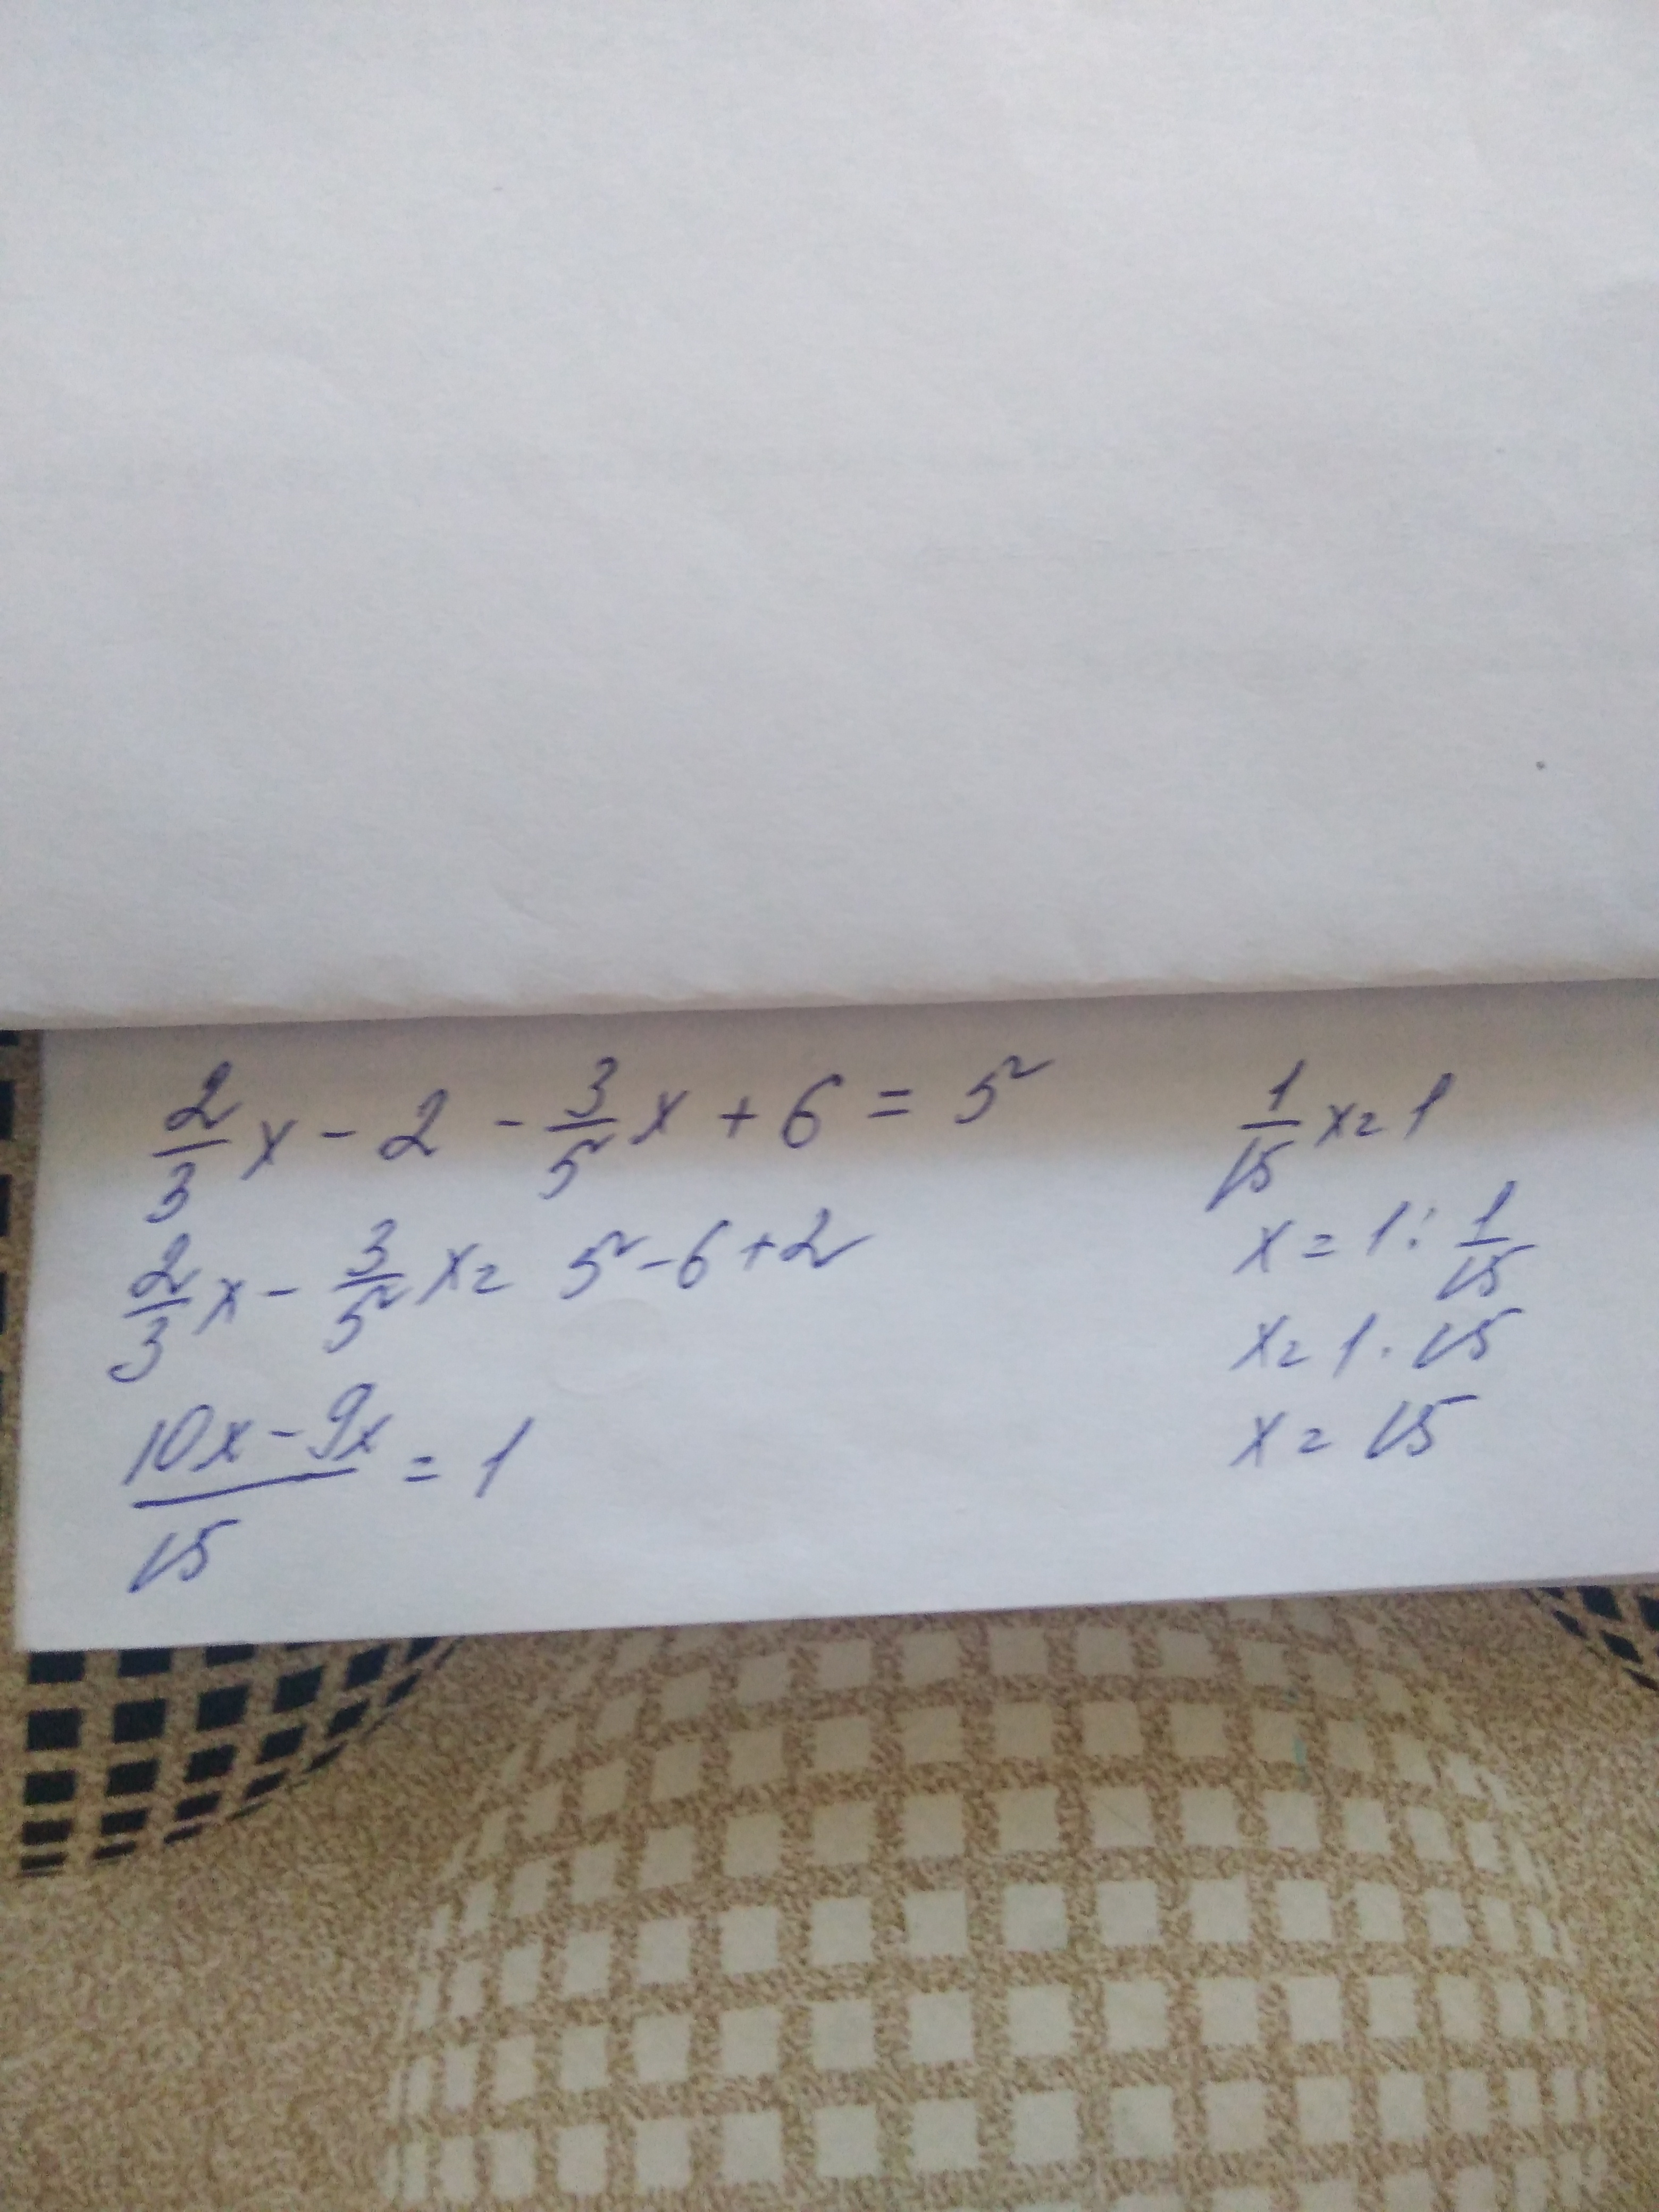 2/3 x - 2 - 3/5 x + 6 = 5
2/3 x - 3/5 x = 5 - 6 + 2
(10x - 9x)/15 = 1
1/15 x = 1
x = 1 : 1/15
x = 1 · 15
x = 15